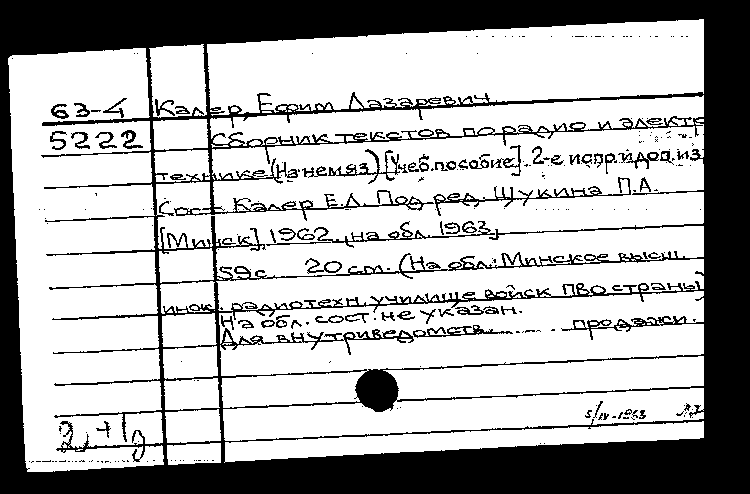 63-4 Калер, Ефим Лазаревич.
5222 Сборник текстов по радио и электро
технике (На нем яз) [Учеб. пособие]. 2-е испр. и доп. из
Сост. Калер Е.Л. Под ред. Щукина П.А.
[Минск], 1962, [на обл. 1963]
59 с. 20 см. (На обл.: Минское высш.
инж. радиотехн. училище войск ПВО страны)
На обл. сост. не указан.
Для внутриведомств. продажи.
5/IV-1963